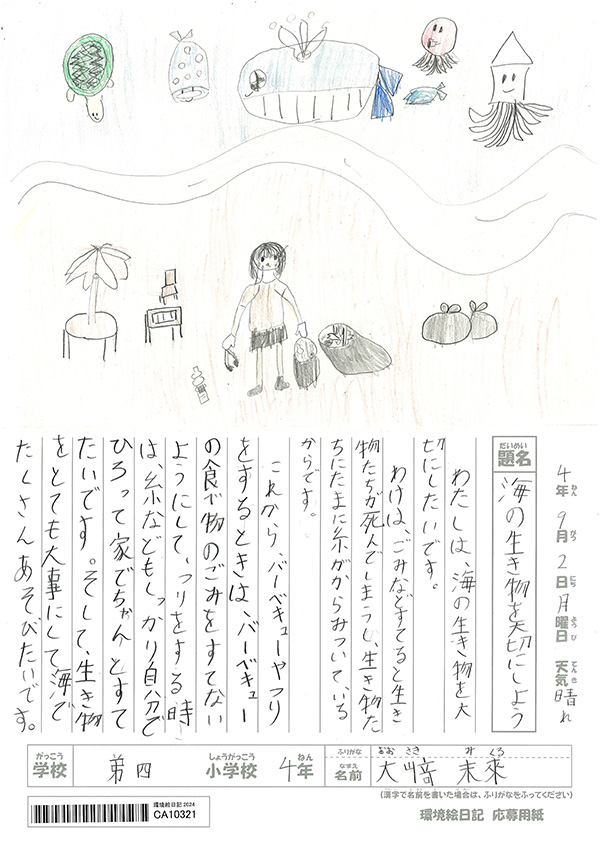 4年 9月 2日 月曜日 天気 晴れ
ねん がつ にち ようび てんき
だいめい
題名 海の生き物を大切にしよう
わたしは、海の生き物を大
切にしたいです。
わけは、ごみなどすてると生き
物たちが死んでしまうし、生き物た
ちにたまに糸がからみついている
からです。
これから、バーベキューやつり
をするときは、バーベキュー
の食べ物のごみをすてない
ようにして、つりをする時
は、糸などもしっかり自分で
ひろって家でちゃんとすて
たいです。そして、生き物
をとても大事にして海で
たくさんあそびたいです。
がっこう しょうがっこう ねん
学校 第四 小学校 4年
ふりがな おおさき みくろ
なまえ
名前 大﨑 未來
(漢字で名前を書いた場合は、ふりがなをふってください)
環境絵日記2024
CA10321
環境絵日記 応募用紙